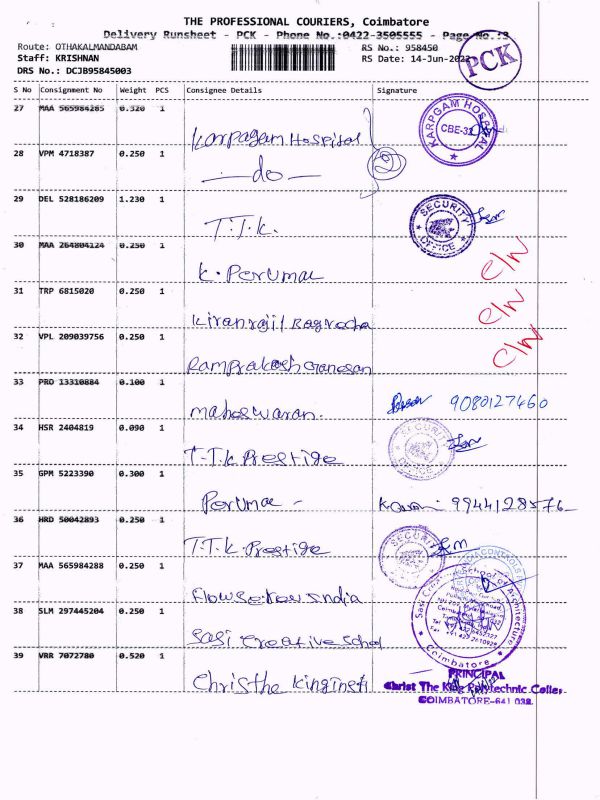 THE PROFESSIONAL COURIERS, Coimbatore
Delivery Runsheet - PCK - Phone No.:0422-3505555 - Page No.:3
Route: OTHAKALMANDABAM RS No.: 958450
Staff: KRISHNAN RS Date: 14-Jun-2022
DRS No.: DCJB95845003
PCK
S No Consignment No Weight PCS Consignee Details Signature
27 MAA 565984285 0.320 1
Karpagam Hospital
KARPGAM HOSPITAL CBE-32
28 VPM 4718387 0.250 1
- do -
2
29 DEL 528186209 1.230 1
T.T.K.
SECURITY OFFICE
30 MAA 264804124 0.250 1
K. Perumal
C/N
31 TRP 6815020 0.250 1
Kiranraji
C/N
32 VPL 209039756 0.250 1
Ramprakash Ganesan
C/N
33 PRO 13310884 0.100 1
maheswaran.
9080127460
34 HSR 2404819 0.090 1
T.T.K Prestige
SECURITY
35 GPM 5223390 0.300 1
Perumal -
9944128576
36 HRD 50042893 0.250 1
T.T.K. Prestige
SECURITY
37 MAA 565984288 0.250 1
38 SLM 297445204 0.250 1
Sasi Creative School
Sasi Creative School of Architecture
Coimbatore
39 VRR 7072780 0.520 1
Christhe King
PRINCIPAL
Christ The King Polytechnic Colle
COIMBATORE-641 032.